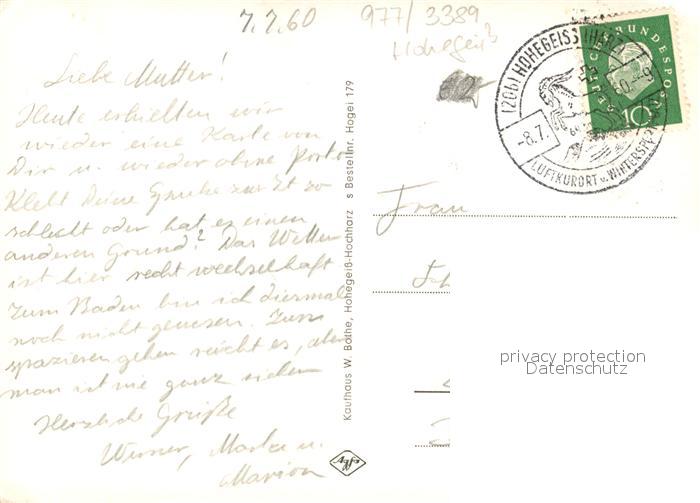 7.7.60
977/3389
Hohegeiß
Liebe Mutter!
Heute erhielten wir
wieder eine Karte von
Dir u. wieder ohne Porto
Klebt Deine Spucke zur Zt so
schlecht oder hat es einen
anderen Grund? Das Wetter
ist hier recht wechselhaft
zum Baden bin ich diesmal
noch nicht gewesen. Zum
spazieren gehen reicht es, aber
man ist nie ganz sicher
Herzliche Grüße
Werner, Marka u.
Marion
Kaufhaus W. Bothe, Hohegeiß-Hochharz s Bestellnr. Hogei 179
Agfa
(20b) HOHEGEISS (HARZ)
-8.7.
60-9
LUFTKURORT u. WINTERSP
DEUTSCHE BUNDESPOST
10
Frau
privacy protection
Datenschutz